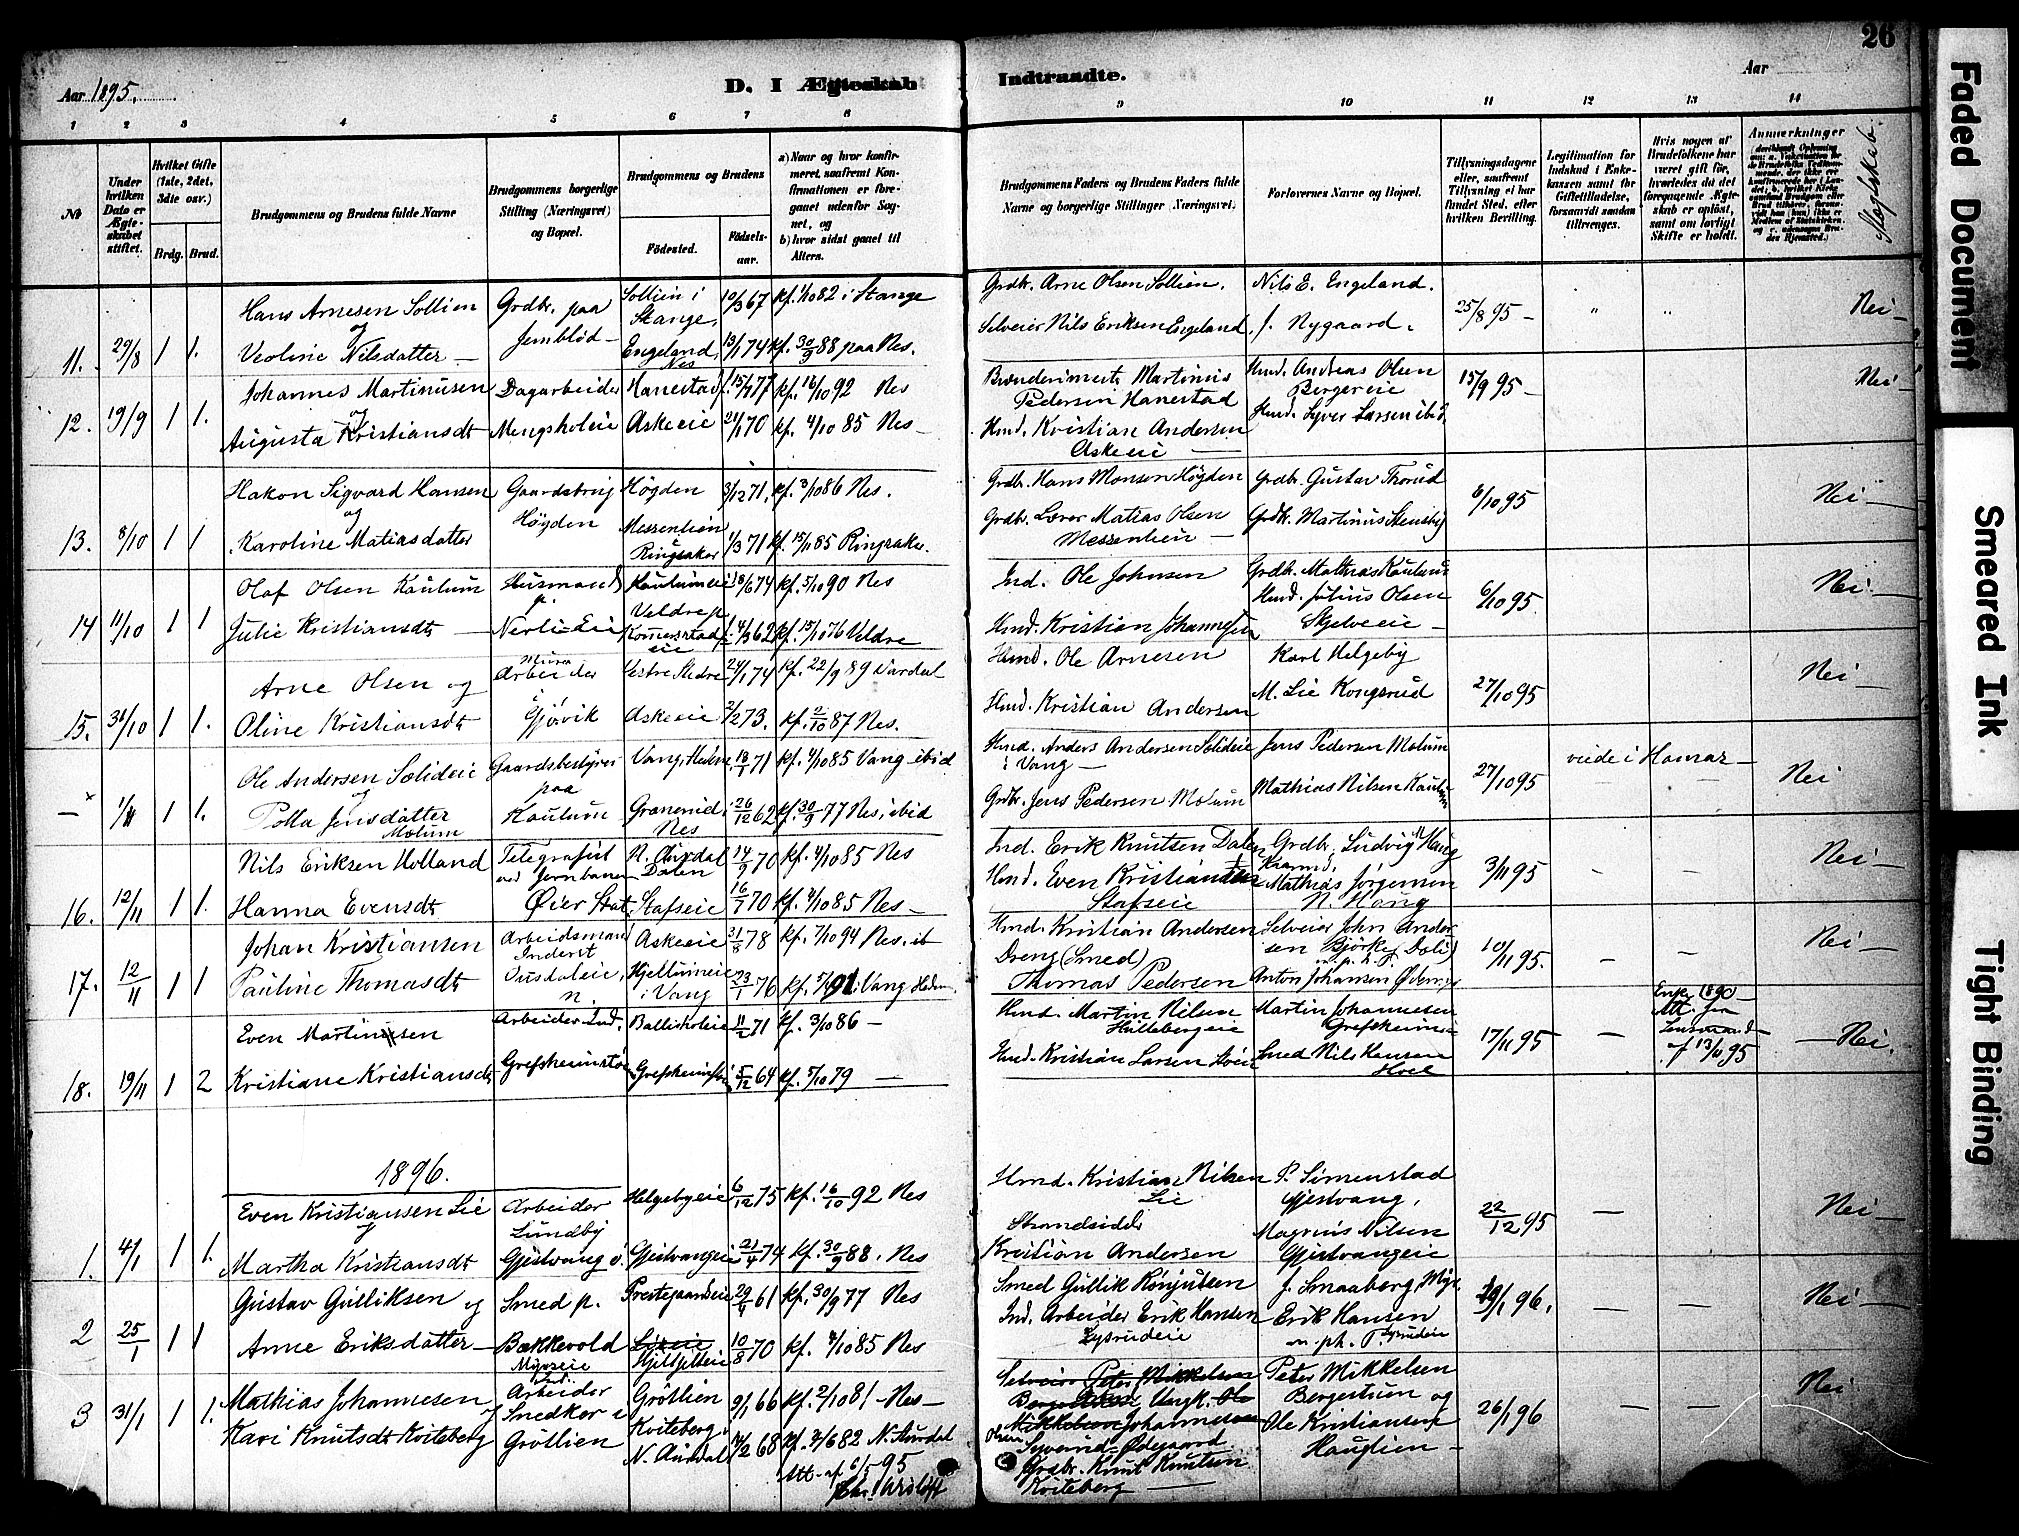 26
Aar 1895.
D. I Ægteskab Indtraadte.
Aar
1 2 3 4 5 6 7 8 9 10 11 12 13 14
No
Under hvilken Dato er Ægteskabet stiftet.
Hvilket Gifte (1ste, 2det, 3die osv.)
Brdg. Brud.
Brudgommens og Brudens fulde Navne
Brudgommens borgerlige Stilling (Næringsvei) og Bopæl.
Brudgommens og Brudens
Födested.
Födselsaar.
a) Naar og hvor konfirmeret, saafremt Konfirmationen er foregaaet udenfor Sognet, og
b) hvor sidst gaaet til Alters.
Brudgommens Faders og Brudens Faders fulde Navne og borgerlige Stillinger (Næringsvei).
Forlovernes Navne og Bopæl.
Tillysningsdagene eller, saafremt Tillysning ei har fundet Sted, efter hvilken Bevilling.
Legitimation for Indskud i Enkekassen samt for Giftetilladelse, forsaavidt saadan tiltrænges.
Hvis nogen af Brudefolkene har været gift för, hvorledes da det foregaaende Ægteskab er oplöst, samt om lovligt Skifte er holdt.
Anmærkninger
Slægtskab.
11. 29/8 1 1.
Hans Arnesen Sollien
og
Veoline Nilsdatter —
Grdbr. paa
Jemblöd —
Sollien i
Stange,
Engeland,
Nes
10/3 67 kf. 1/10 82 i Stange
13/1 74 kf. 30/9 88 paa Nes.
Grdb. Arne Olsen Sollien.
Selveier Nils Eriksen Engeland,
Nils E. Engeland.
J. Nygaard.
25/8 95 — " " Nei —
12. 19/9 1 1.
Johannes Martinusen
og
Augusta Kristiansdt
Dagarbeider
Mengsholeie
Hanestad
Askeeie
15/1 77 kf. 16/10 92 Nes
21/1 70 kf. 4/10 85 Nes —
Martinus
Pedersen Hanestad
Hmd. Kristian Andersen
Askeeie —
Hmd. Andreas Olsen
Bergereie
Hmd. Syver Larsen ibid.
15/9 95 — Nei —
13. 8/10 1 1
Hakon Sigvard Hansen
og
Karoline Matiasdatter
Gaardsbrug
Högden
Högden
Messenlien
Ringsaker
3/12 71, kf. 3/10 86 Nes.
1/3 71 kf. 15/11 85 Ringsaker.
Grdb. Hans Monsen Högden
Grdb. Lærer Matias Olsen
Messenlien —
Grdb. Gustav Thorud
Grdb. Martinus Stensby
6/10 95 Nei —
14 11/10 1 1
Olaf Olsen Kaulum
Julie Kristiansdt —
Husmand
p.
Nerli-Eie
Kaulumeie
Veldre p.
Komerstad
eie
18/6 74 kf. 5/10 90 Nes
14/3 62 kf. 15/10 76 Veldre
Ind. Ole Johnsen
Hmd. Kristian Johannesen
Grdb. Mathias Kaulum
Hmd. Julius Olsen
Skjelveeie —
6/10 95. Nei —
15. 31/10 1 1.
Arne Olsen og
Oline Kristiansdt
Murarbeider
i
Gjövik
Askeeie
24/1 74 kf. 22/9 89 Vardal
2/2 73. kf. 2/10 87 Nes.
Hmd. Ole Arnesen
Hmd. Kristian Andersen
Karl Helgeby
M. Lie Kongsrud
27/10 95 Nei —
— 1/11 1 1.
Ole Andersen Sælideie
og
Polla Jensdatter
Molum
Gaardsbestyrer
paa
Kaulum
Vang, Hedm.
Granerud,
Nes
18/1 71 kf. 4/10 85 Vang — ibid
26/12 62 kf. 30/9 77 Nes, ibid
Hmd. Anders Andersen Sælideie
i Vang —
Grdbr. Jens Pedersen Molum
Jens Pedersen Molum
Mathias Nilsen Kaulum
27/10 95 viede i Hamar — Nei
16. 12/11 1 1.
Nils Eriksen Holland
Hanna Evensdt
Telegrafist
ved Jernbanen
Øier Stat.
N. Aurdal
Dalen
Stafseie
14/9 70 kf. 4/10 85 Nes
16/7 70 kf. 4/10 85 Nes —
Ind. Erik Knutsen Dalen
Hmd. Even Kristiansen
Stafseie
Grdbr. Ludvig Haug
Mathias Jörgensen
N. Haug
3/11 95 — — Nei —
17. 12/11 1 1
Johan Kristiansen
Pauline Thomasdt
Arbeidsmand
Inderst
n.
Askeeie
Hjellumeie
i Vang
31/8 78 kf. 7/10 94 Nes. ib
23/1 76 kf. 5/4 91 Vang Hedm.
Hmd. Kristian Andersen
Dreng (Smed)
Thomas Pedersen
Selveier John Andersen
Björke Dali)
Anton Johansen
10/11 95. — — Nei —
18. 19/11 1 2
Even Martinusen
Kristiane Kristiansdt
Arbeider Ind.
Grefsheimstöa
Ballisholeie
Grefsheimstöa
11/2 71 kf. 3/10 86 —
5/12 64 kf. 5/10 79 —
Hmd. Martin Nilsen
Hullebergeie
Hmd. Kristian Larsen
Martin Johannesen
Grefsheim
Smed Nils Hansen
Hoel
17/11 95 —
Enke 1890 —
Att. fra
Lensmand
af 13/11 95
— Nei.
1896.
1. 4/1 1 1.
Even Kristiansen Lie
og
Martha Kristiansdt
Arbeider
Lundby
Gjestvang ö.
Helgebyeie
Gjestvangeie
6/12 75 kf. 16/10 92 Nes
21/4 74 kf. 30/9 88. Nes
Hmd. Kristian Nilsen
Lie
Strandsidder
Kristian Andersen
P. Simenstad
Gjestvang,
Magnus Nilsen
Gjestvangeie
22/12 95 — Nei —
2 25/1 1 1
Gustav Gulliksen og
Anne Eriksdatter —
Smed p.
Bækkevold
Mjöseie
Prestegaardseie
Hjelseteie
29/4 61 kf. 30/9 77 Nes
10/8 70 kf. 4/10 85 Nes
Smed Gullik Rönjulsen
Ind. Arbeider Erik Hansen
Lysrudeie
J. Smaaberg
Erik Hansen
19/1 96. — — Nei —
3 31/1 1 1.
Mathias Johannesen og
Kari Knutsdt Kviteberg
Ind.
Arbeider
Snedker i
Grötlien
Grötlien
Kviteberg,
N. Aurdal
9/1 66 kf. 2/10 81 — Nes —
4/2 68 kf. 4/6 82 N. Aurdal
Att. af 6/5 95
Selveier Peter Mikkelsen
Ungk. Ole
Mikkelsen Johannesen
Syverud-Ødegaard
Grdbr. Knut Knutsen
Kviteberg —
Peter Mikkelsen
Bergestuen og
Ole Kristiansen
Hauglien —
26/1 96 — — Nei
Faded Document
Smeared Ink
Tight Binding